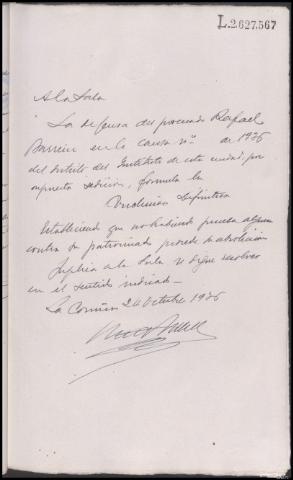 L.2.627.567
A la Sala
La defensa del procesado Rafael
en la causa nº de 1936
del distrito del Instituto de esta ciudad, por
supuesta sedición, formula la
Conclusión definitiva
Estableciendo que no habiendo prueba alguna
contra su patrocinado procede su absolución
Suplica a la Sala se digne resolver
en el sentido indicado
La Coruña 26 Octubre 1936